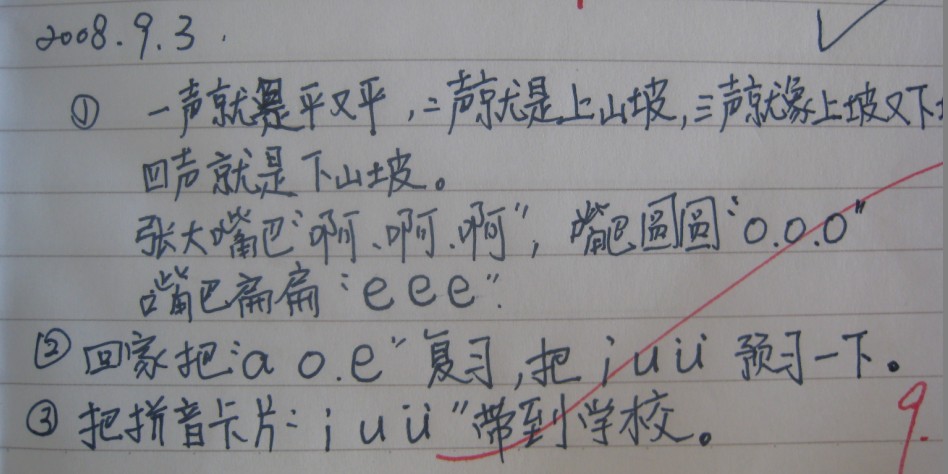 2008.9.3.
① 一声就是平又平,二声就是上山坡,三声就象上坡又下
四声就是下山坡。
张大嘴巴“啊、啊、啊”, 嘴巴圆圆“o.o.o”
嘴巴扁扁“e e e”.
② 回家把“a o.e”复习,把 i u ü 预习一下。
③ 把拼音卡片“i u ü”带到学校。
9.